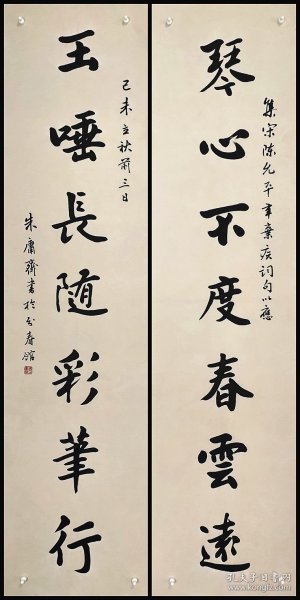 琴心不度春雲遠
集宋陳允平辛棄疾詞句以應
玉唾長隨彩筆行
己未立秋前三日
朱庸齋書於分春館
孔夫子旧书网